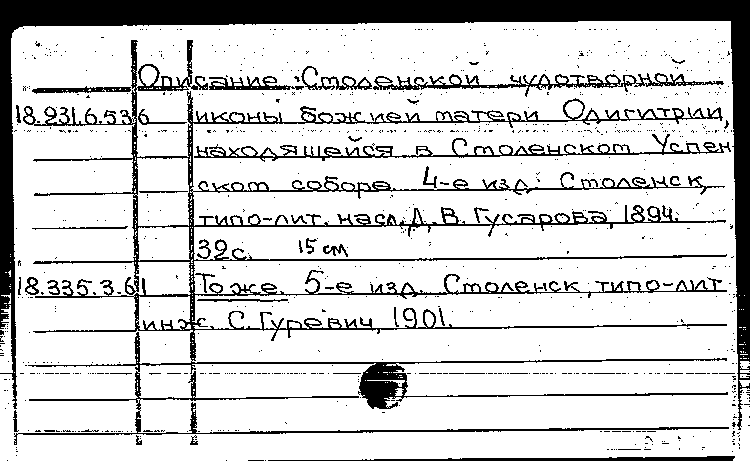 Описание Смоленской чудотворной
18.231.6.536 иконы божией матери Одигитрии,
находящейся в Смоленском Успен
ском соборе. 4-е изд. Смоленск,
типо-лит. насл. Д. В. Гусарова, 1894.
32с. 15 см
18.335.3.61 То же. 5-е изд. Смоленск, типо-лит
инж. С. Гуревич, 1901.